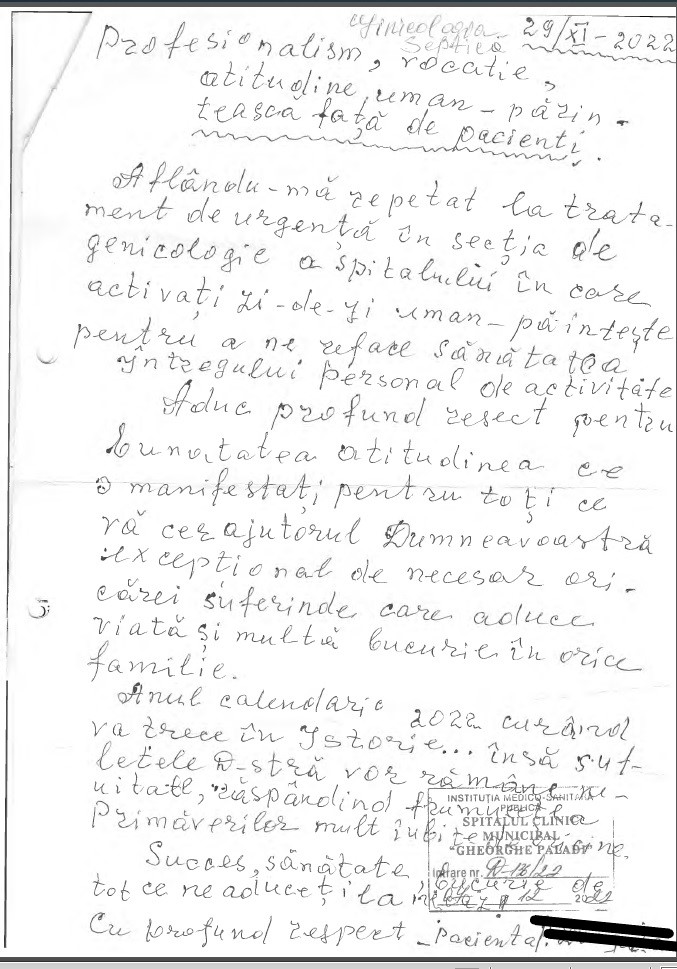 Ginicologia
Septică
29/XI-2022
Profesionalism, vocatie,
atitudine uman-părin-
tească față de pacienți.
Aflându-mă repetat la trata-
ment de urgență în secția de
genicologie a spitalului în care
activați zi-de-zi uman-păintește
pentru a ne reface sănătatea
Întregului personal de activitate
Aduc profund resect pentru
bunatatea atitudinea ce
o manifestați pentru toți ce
vă cer ajutorul Dumneavoastră
excepțional de necesar ori-
cărei suferinde care aduce
viată și multă bucurie în orice
familie.
Anul calendaric 2022 curând
va trece în Ystorie... însă suf-
letele D-stră vor rămâne ne-
uitate, răspândind frumusețea
Primăverilor mult iubite
Succes, sănătate, bucurie de
tot ce ne aduceți la
Cu profund respect - pacienta
INSTITUȚIA MEDICO-SANITARĂ
PUBLICĂ
SPITALUL CLINIC
MUNICIPAL
"GHEORGHE PALADI"
Intrare nr.
12 2022